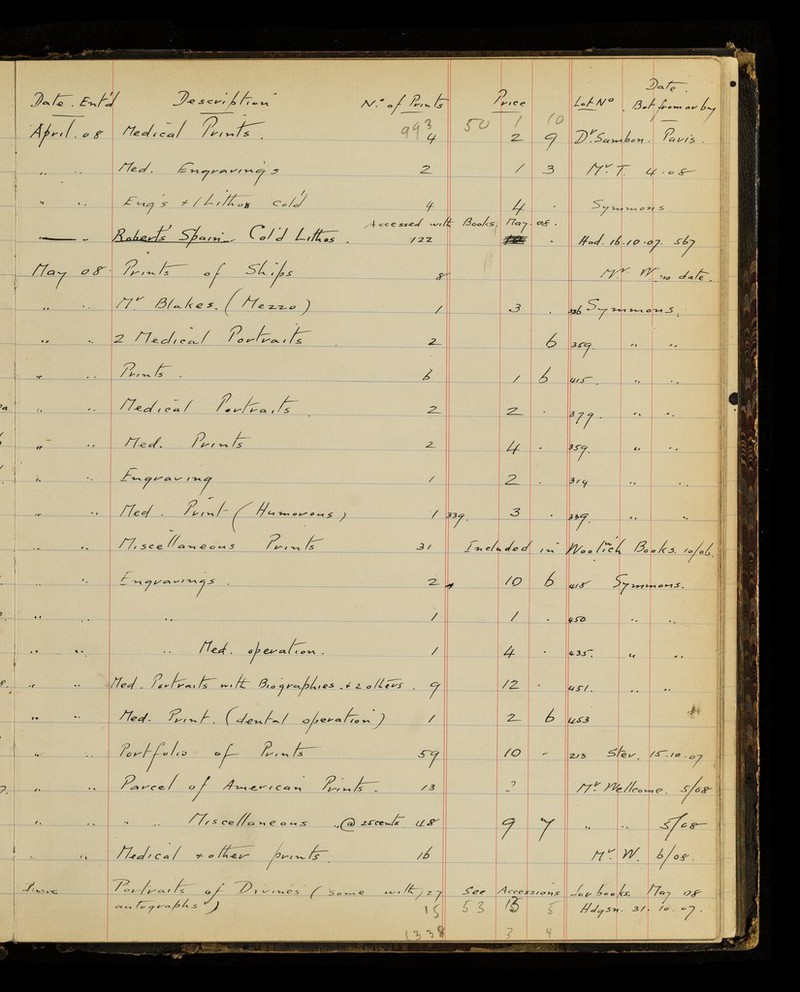 Date.
Date. Ent'd Description No. of Prints Price Lot No. Bot from or by
993 50 1 10
April. 08 Medical Prints. 4 2 9 Dr. Sambon. Paris.
" " Med. Engravings 2 1 3 Mr. T. 4.08
" " Eng's + 1 Lithos Col'd 4 4 - Symmons
Accessed with Books, May 08.
" Roberts' Spain. Col'd Lithos. 122 . Hod. 16.10.07. 567
May 08 Prints of Ships 8 Mr. W no date.
" " Mr Blakes. (Mezzo) 1 3 . 336 Symmons.
" " 2 Medical Portraits 2 6 359 " "
" " Prints. 6 1 6 415. " "
" " Medical Portraits. 2 2 . 379. " "
" " Med. Prints 2 4 . 359. " "
" " Engraving 1 2 . 314 " "
" " Med. Print (Humorous) 1 339. 3 . 339. " "
" " Miscellaneous Prints 31 Included in Woolich Books. 10/06.
" " Engravings. 2 10 6 418 Symmons.
" " " 1 1 . 450 " "
" " " Med. operation. 1 4 . 435. " "
" " Med. Portraits with Biographies. + 2 others. 9 12 . 451. " "
" " Med. Print. (dental operation) 1 2 6 453
" " Portfolio of Prints 59 10 - 213 Stev. 15.10.07
" " Parcel of American Prints. 13 ? Mr. Wellcome. 5/08
" " " " Miscellaneous " @ 25cents 48 9 7 " " 5/08
" " Medical + other prints. 16 Mr. W. 6/08.
June Portraits of Divines (some with 27 See Accessions for books. May 08
autographs) 15 53 13 5 Hdgsn. 31. 10. 07.
1338 3 4